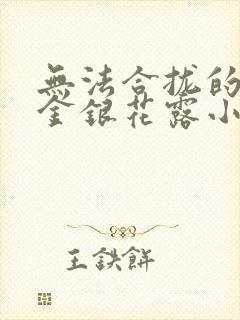 無法合拢的
金銀花露小
王鉄餅